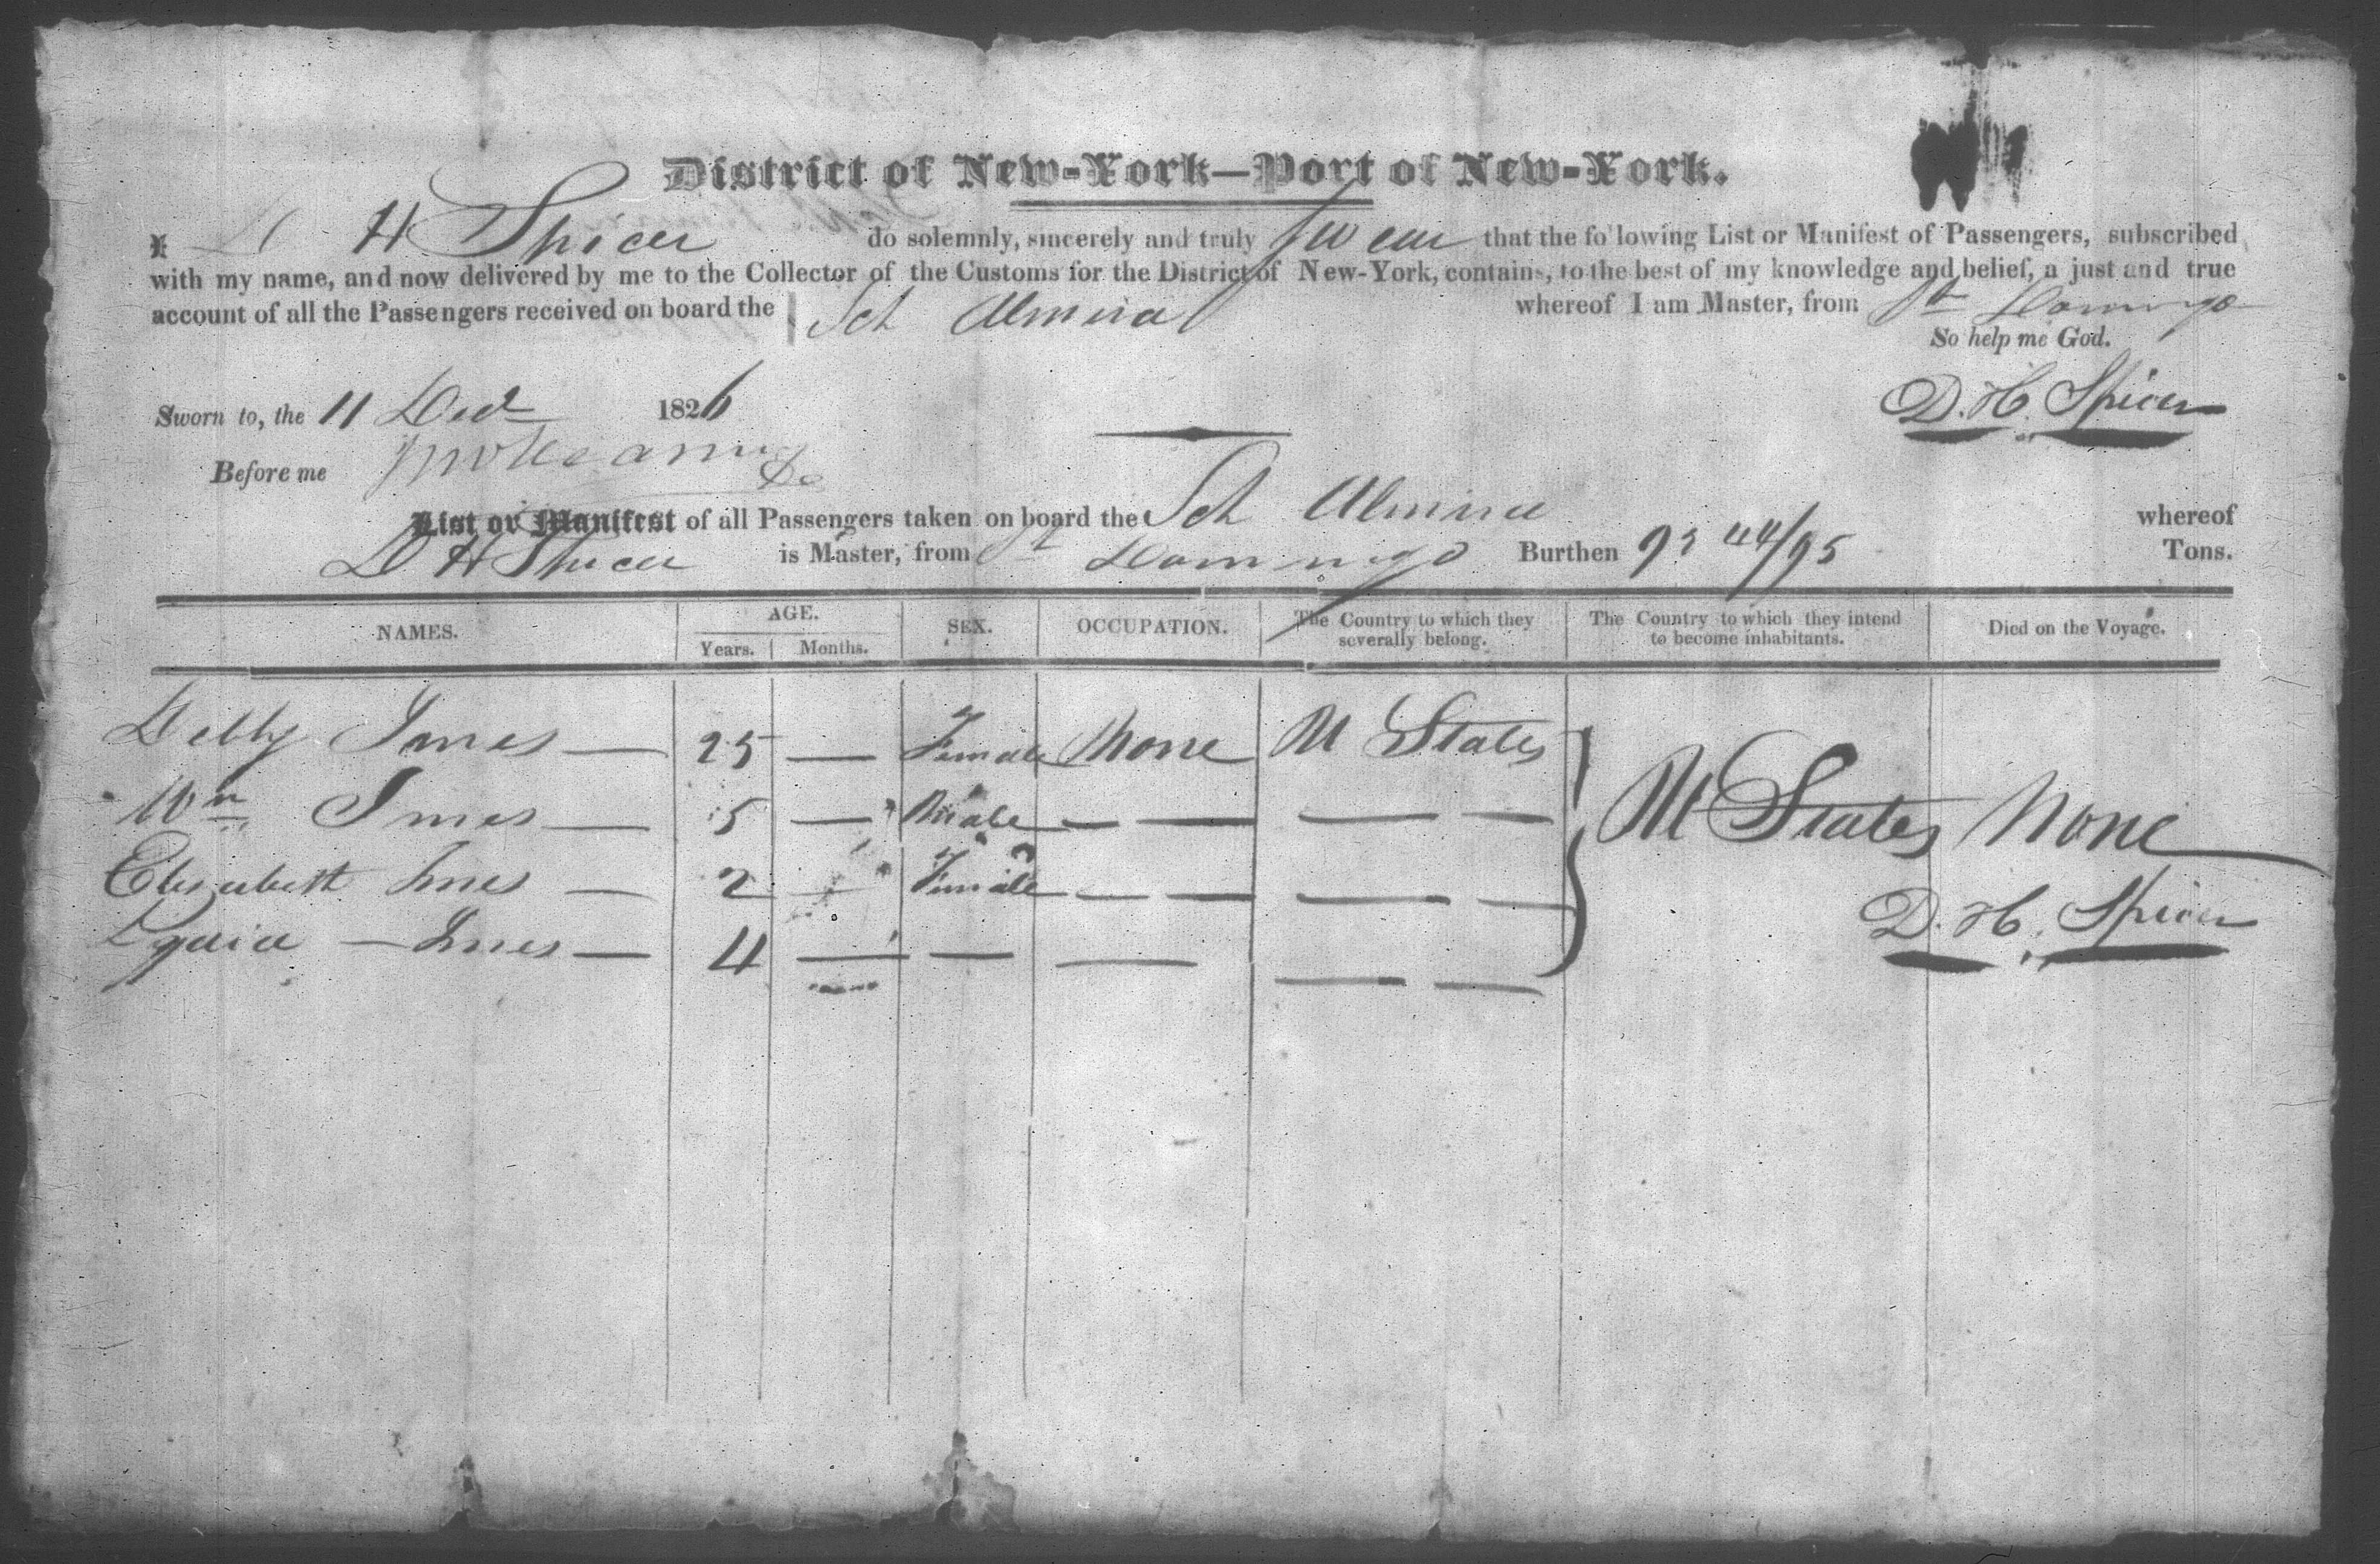 District of New-York—Port of New-York.
I D H Spicer do solemnly, sincerely and truly Swear that the following List or Manifest of Passengers, subscribed
with my name, and now delivered by me to the Collector of the Customs for the District of New-York, contains, to the best of my knowledge and belief, a just and true
account of all the Passengers received on board the Sch Almira whereof I am Master, from St Domingo
So help me God.
Sworn to, the 11 Decr 1826
D. H. Spicer
Before me
List or Manifest of all Passengers taken on board the Sch Almira whereof
D H Spicer is Master, from St Domingo Burthen 44/95 Tons.
NAMES. AGE. SEX. OCCUPATION. The Country to which they severally belong. The Country to which they intend to become inhabitants. Died on the Voyage.
Years. Months.
Debby Innes — 25 — Female None U States
Wm Innes — 5 — Male — — — —
U States None
Elizabeth Innes — 2 — Female — — — —
D. H. Spicer
— Innes — 4 — — — — —